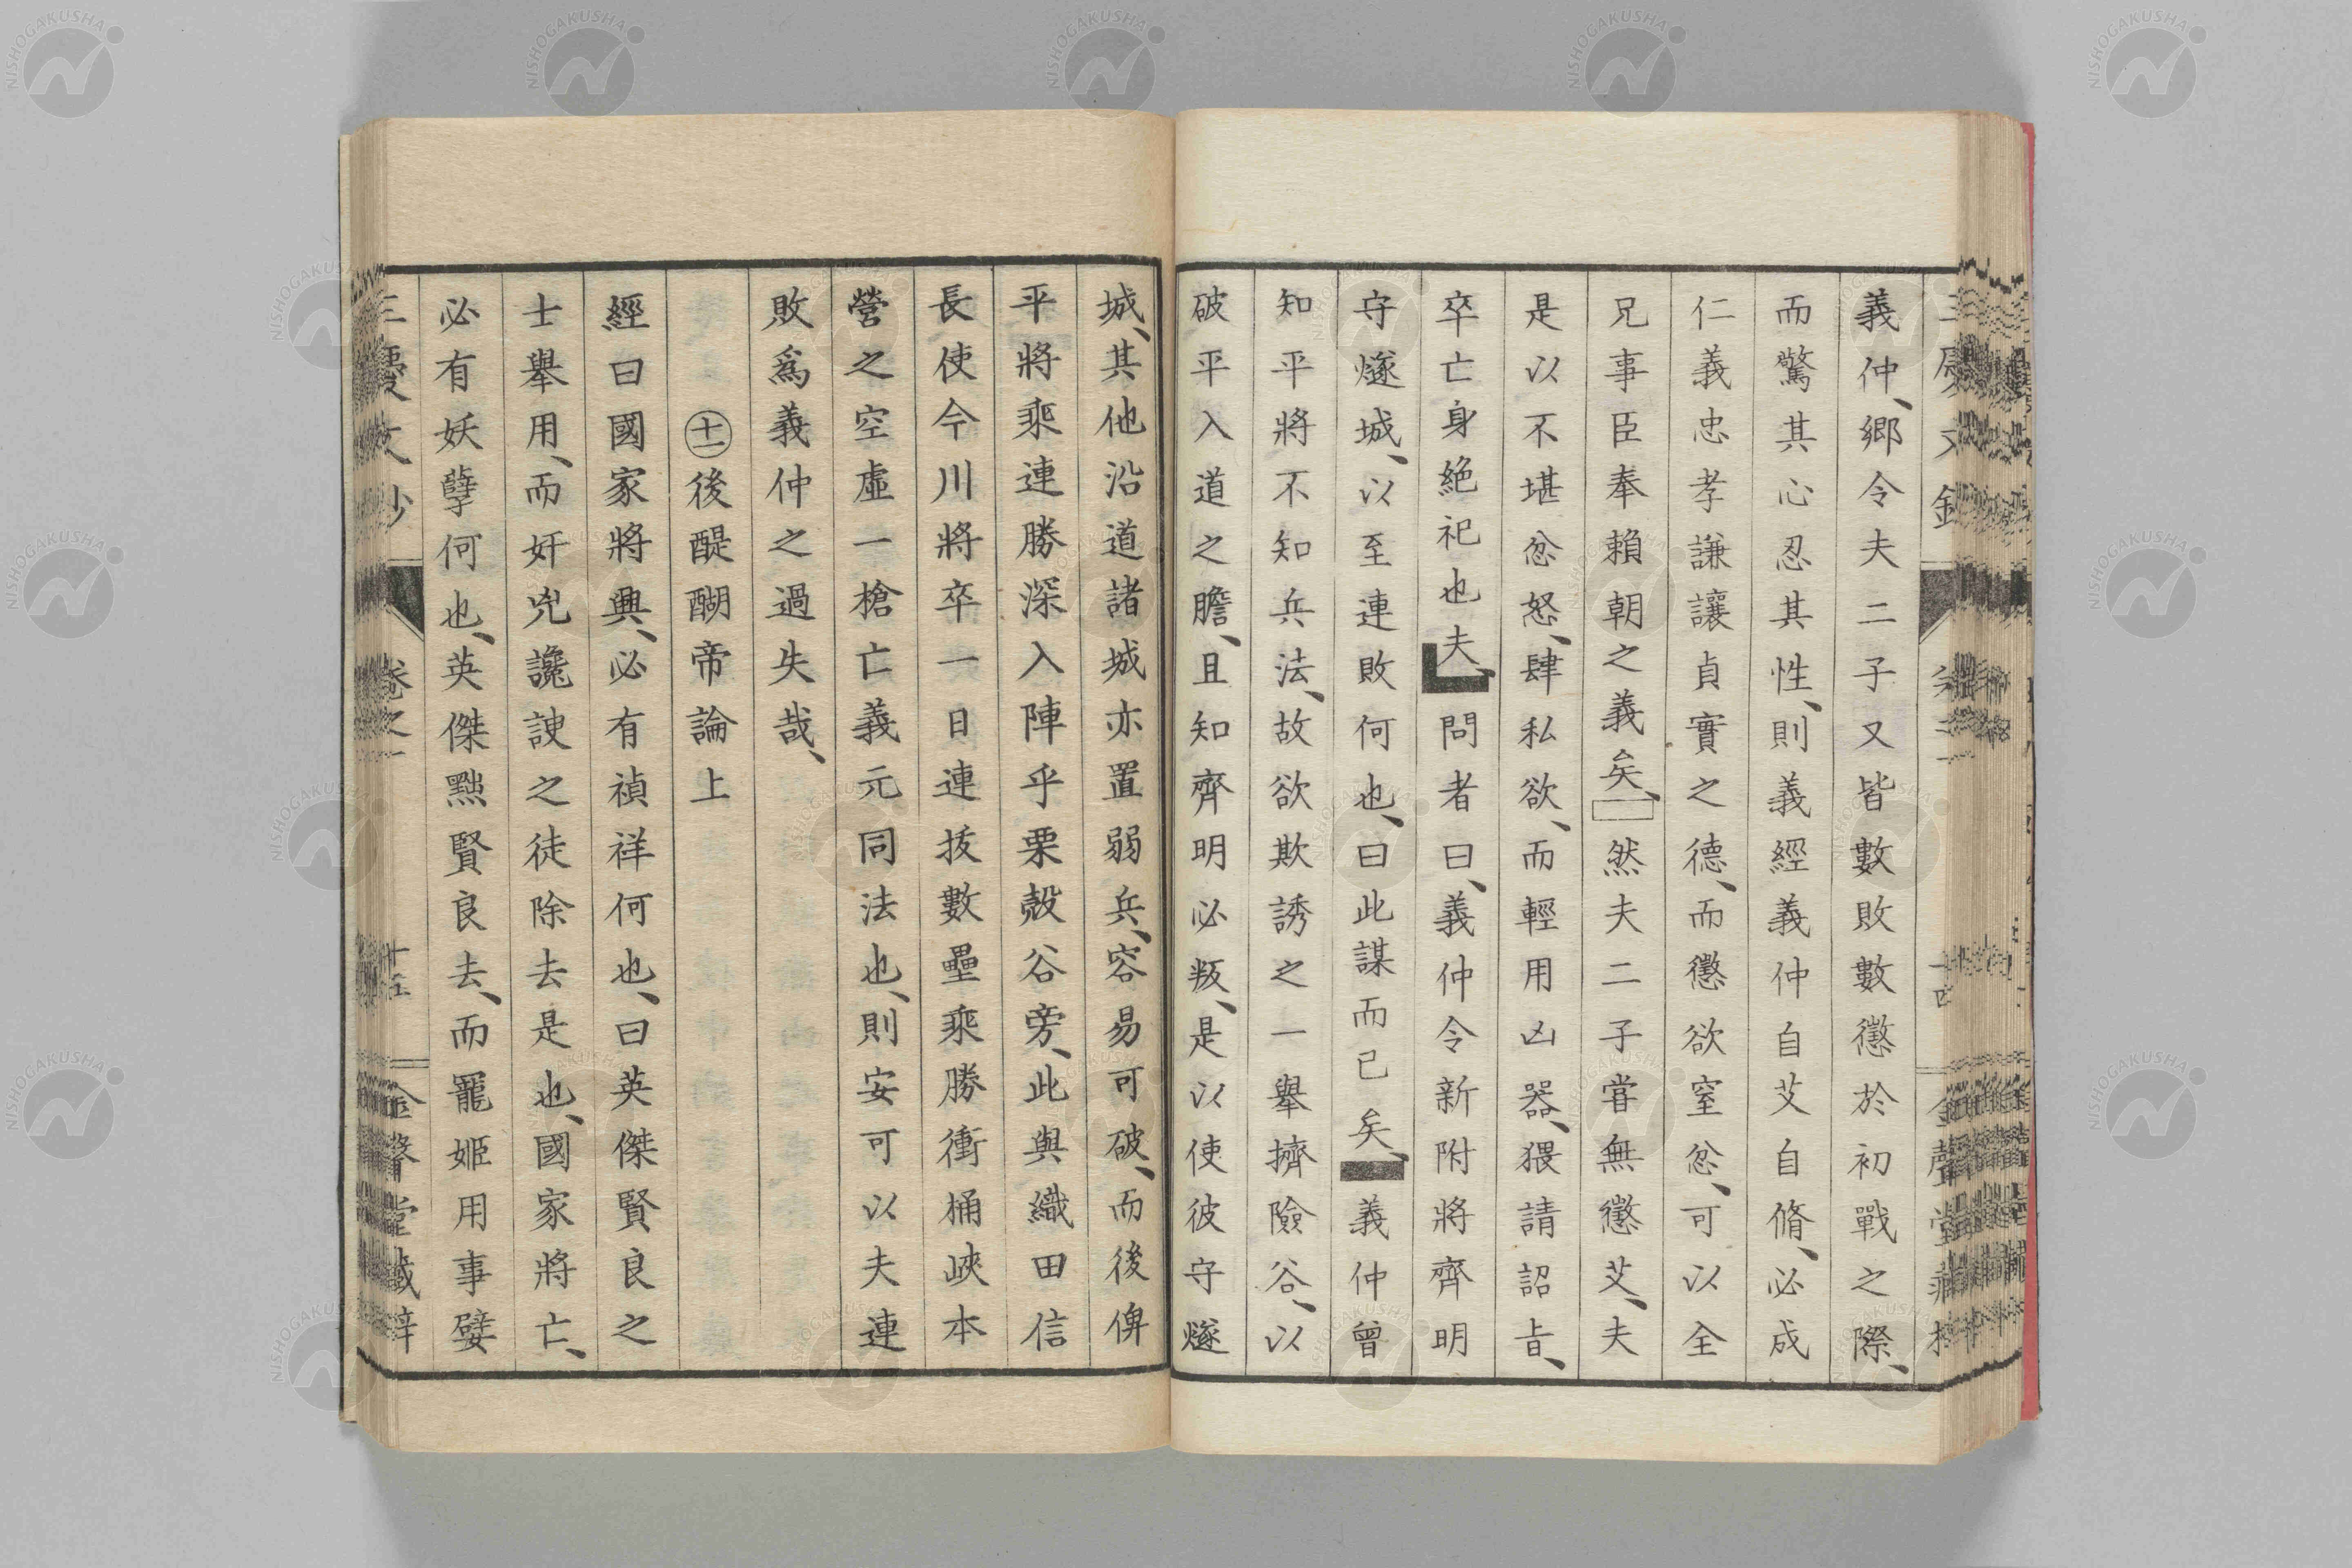 義仲、鄉令夫二子又皆數敗數懲於初戰之際、
而驚其心忍其性、則義經義仲自艾自脩、必成
仁義忠孝謙讓貞實之德、而懲欲窒忿、可以全
兄事臣奉賴朝之義矣、然夫二子嘗無懲艾、夫
是以不堪忿怒、肆私欲、而輕用凶器、猥請詔旨、
卒亡身絕祀也夫、問者曰、義仲令新附將齊明
守燧城、以至連敗何也、曰此謀而已矣、義仲曾
知平將不知兵法、故欲欺誘之一舉擠險谷、以
破平入道之膽、且知齊明必叛、是以使彼守燧
城、其他沿道諸城亦置弱兵、容易可破、而後俾
平將乘連勝深入陣乎栗殼谷旁、此與織田信
長使今川將卒一日連拔數壘乘勝衝桶峽本
營之空虛一槍亡義元同法也、則安可以夫連
敗爲義仲之過失哉、
㊉一後醍醐帝論上
經曰國家將興、必有禎祥何也、曰英傑賢良之
士舉用、而奸兇讒諛之徒除去是也、國家將亡、
必有妖孽何也、英傑黜賢良去、而寵姬用事嬖
卷之一
十五
NISHOGAKUSHA